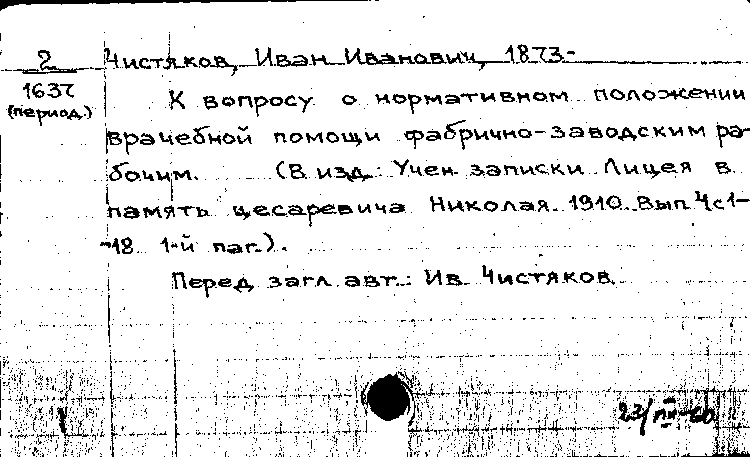 2
1637
(период.)
Чистяков, Иван Иванович, 1873-
К вопросу о нормативном положении
врачебной помощи фабрично-заводским ра-
бочим. (В изд.: Учен. записки Лицея в
память цесаревича Николая. 1910. Вып. 4 с 1-
-18 1-й паг.).
Перед загл. авт.: Ив. Чистяков.
23/
60